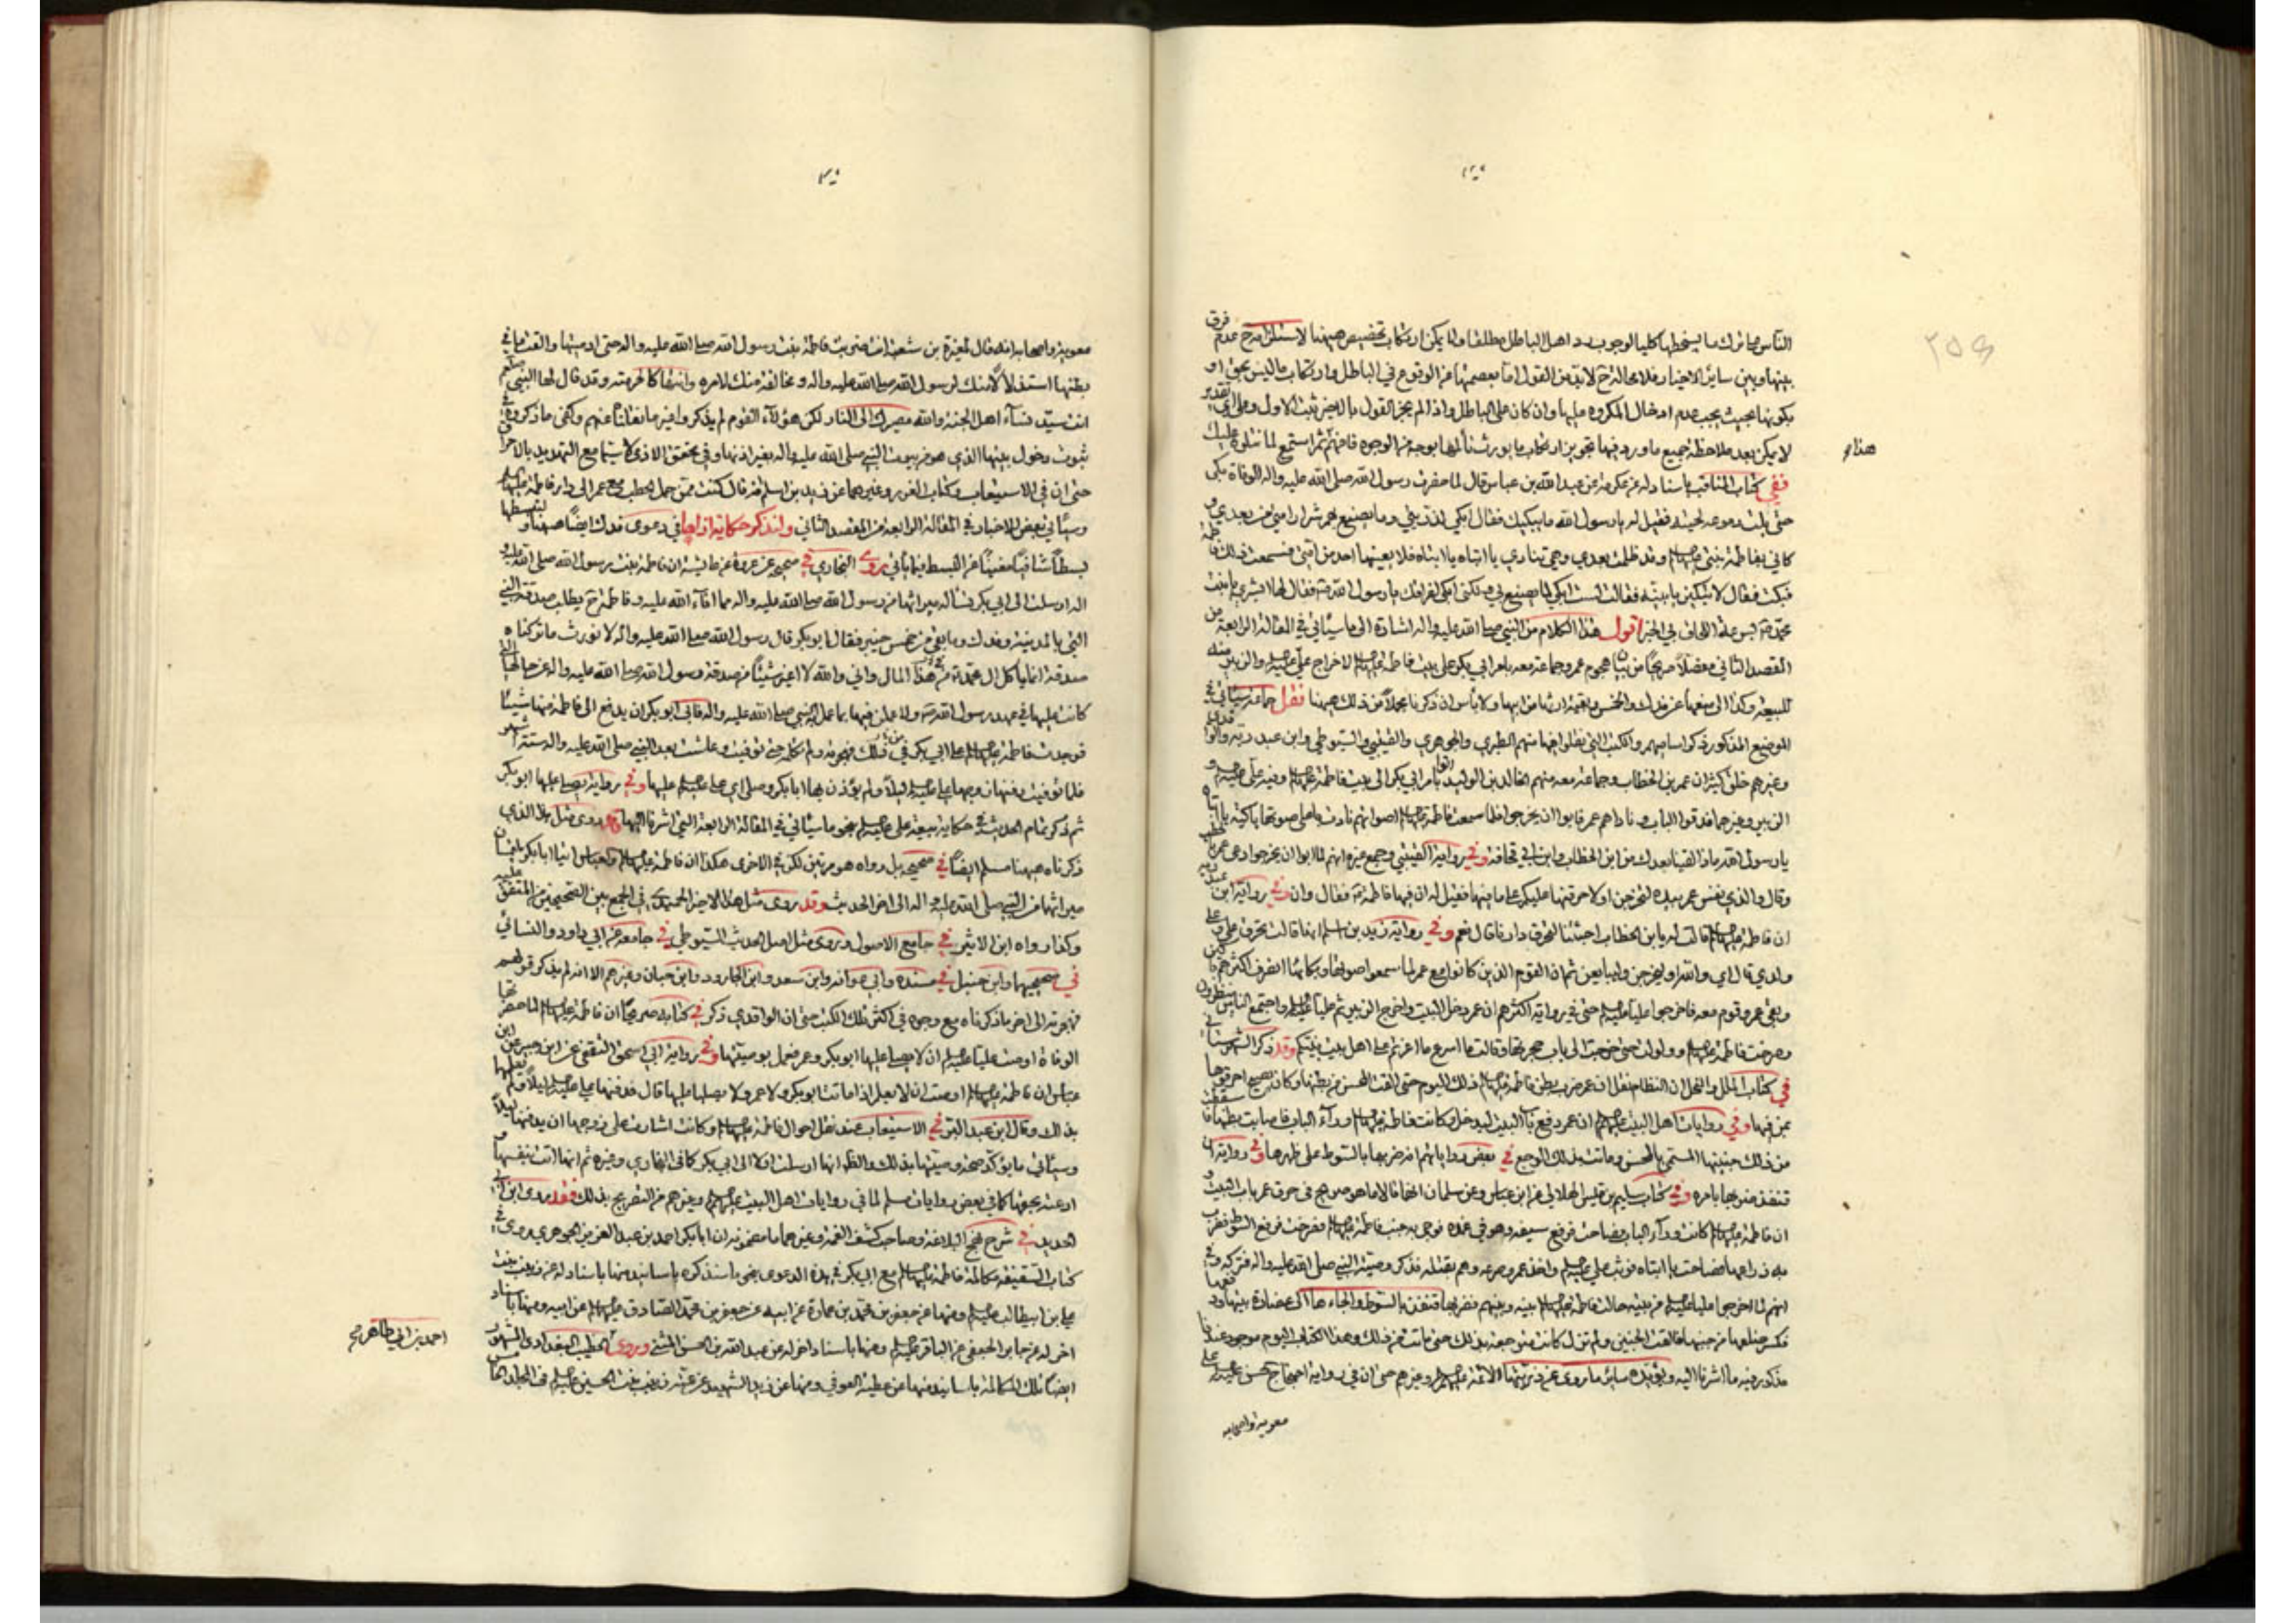 ٢٥٦
الناس بما ترك ما يسخطها كليا لوجوب رد اهل الباطل مطلقا ولا يمكن ارتكاب تخصيص هيهنا لاستلزامه ح عدم فرق
بينها وبين ساير الاخيار فلا محالة ح لابد من القول اما بعصمتها عن الوقوع في الباطل وارتكاب ما ليس بحق او
بكونها بحيث يجب عدم ادخال المكروه عليها وان كان على الباطل واذا لم يجز القول بالاخير ثبت الاول وعلى اي تقدير
لا يمكن بعد ملاحظة جميع ما ورد فيها تجويز ارتكاب ما يورث تألمها بوجه من الوجوه فافهم ثم استمع لما نتلوه عليك
هذا
ففي كتاب المناقب باسناد له عن عكرمة عن عبد الله بن عباس قال لما حضرت رسول الله صلى الله عليه واله الوفاة بكى
حتى بلت دموعه لحيته فقيل له يا رسول الله ما يبكيك فقال ابكي لذريتي وما يصنع بهم شرار امتي من بعدي
كاني بفاطمة بنتي عليها السلام وقد ظلمت بعدي وهي تنادي يا ابتاه يا ابتاه فلا يعينها احد من امتي فسمعت ذلك فاطمة
فبكت فقال لا تبكين يا بنية فقالت لست ابكي لما يصنع بي من بعدك ولكني ابكي لفراقك يا رسول الله فقال لها ابشري يا بنت
محمد بسرعة اللحاق بي الخبر اقول هذا الكلام من النبي صلى الله عليه واله اشارة الى ما سيأتي في المقالة الرابعة من
المقصد الثاني مفصلا صريحا من بيان هجوم عمر وجماعة معه بامر ابي بكر على بيت فاطمة عليها السلام لاخراج علي عليه السلام والزبير منه
للبيعة وكذا الى منعها عن فدك والخمس وبقية ارثها من ابيها ولا بأس ان ذكرنا مجملا من ذلك هيهنا نقل جماعة سيأتي في
الموضع المذكور ذكر اساميهم والكتب التي نقلوا فيها منهم الطبري والجوهري والقتيبي والسيوطي وابن عبد ربه والواقدي
وغيرهم خلق كثير ان عمر بن الخطاب وجماعة معه منهم خالد بن الوليد اتوا بامر ابي بكر الى بيت فاطمة عليها السلام وفيه علي عليه السلام و
الزبير وغيرهما فدقوا الباب وناداهم عمر فابوا ان يخرجوا فلما سمعت فاطمة عليها السلام اصواتهم نادت باعلى صوتها باكية يا ابتاه
يا رسول الله ماذا لقينا بعدك من ابن الخطاب وابن ابي قحافة وفي رواية القتيبي وجمع غيره انهم لما ابوا ان يخرجوا دعى عمر بالحطب
وقال والذي نفس عمر بيده لتخرجن او لاحرقنها عليكم على ما فيها فقيل له ان فيها فاطمة فقال وان وفي رواية ابن عبد ربه
ان فاطمة عليها السلام قالت له يا بن الخطاب اجئتنا لتحرق دارنا قال نعم وفي رواية زيد بن اسلم انها قالت تحرق علي وعلى
ولدي قال اي والله او ليخرجن وليبايعن ثم ان القوم الذين كانوا مع عمر لما سمعوا صوتها وبكائها انصرف اكثرهم باكين
وبقي عمر وقوم معه فاخرجوا عليا عليه السلام حتى في رواية اكثرهم ان عمر دخل البيت واخرج الزبير ثم عليا عليه السلام واجتمع الناس ينظرون
وصرخت فاطمة عليها السلام وولولت حتى خرجت الى باب حجرتها وقالت ما اسرع ما اغرتم على اهل بيت نبيكم وقد ذكر الشهرستاني
في كتاب الملل والنحل ان النظام نقل ان عمر ضرب بطن فاطمة عليها السلام ذلك اليوم حتى القت المحسن من بطنها وكان يصيح احرقوها
بمن فيها وفي روايات اهل البيت عليهم السلام ان عمر دفع باب البيت ليدخل وكانت فاطمة عليها السلام وراء الباب فاصابت بطنها فاسقطت
من ذلك جنينها المسمى بالمحسن وماتت بذلك الوجع وفي بعض رواياتهم انه ضربها بالسوط على ظهرها وفي رواية ان
قنفذ ضربها بامره وفي كتاب سليم بن قيس الهلالي عن ابن عباس وعن سلمان
ان فاطمة عليها السلام كانت وراء الباب فصاحت فرفع سيفه وهو في غمده فوجى به جنب فاطمة عليها السلام فصرخت فرفع السوط فضرب
به ذراعها فصاحت يا ابتاه فوثب علي عليه السلام واخذ عمر وصرعه وهم بقتله فذكر وصية النبي صلى الله عليه واله فتركه
انهم لما اخرجوا عليا عليه السلام من بيته حالت فاطمة عليها السلام بينه وبينهم فضربها قنفذ بالسوط والجاءها الى عضادة بيتها ودفعها
فكسر ضلعها من جنبها فالقت الجنين ولم تزل كانت موجعة بذلك حتى ماتت من ذلك وهذا الكتاب اليوم موجود عندنا
مذكور فيه ما اشرنا اليه ويؤيده ساير ما روى عن ذريتها الائمة عليهم السلام وغيرهم حتى ان في رواية احتجاج الحسن عليه السلام على
معوية واصحابه
معوية واصحابه انه قال لمغيرة بن شعبة انت ضربت فاطمة بنت رسول الله صلى الله عليه واله حتى ادميتها والقت ما في
بطنها استذلالا منك لرسول الله صلى الله عليه واله ومخالفة منك لامره وانتهاكا لحرمته وقد قال لها النبي صلعم
انت سيدة نساء اهل الجنة والله مصيرك الى النار لكن هؤلاء القوم لم يذكروا وكفى ما ذكروه في
ثبوت دخول بيتها الذي هو من بيوت النبي صلى الله عليه واله بغير اذنها وفي تحقق الاذى لا سيما مع التهديد بالاحراق
حتى ان في الاستيعاب وكتاب الغرر وغيرهما عن زيد بن اسلم انه قال كنت ممن حمل الحطب مع عمر الى دار فاطمة عليها السلام
وسيأتي بعض الاخبار في المقالة الرابعة من المقصد الثاني ولنذكر حكاية اذاها في دعوى فدك ايضا هيهنا ولنبسطها
بسطا شافيا مغنيا عن البسط فيما يأتي روى البخاري في صحيحه عن عروة عن عايشة ان فاطمة بنت رسول الله صلى الله عليه و
اله ارسلت الى ابي بكر تسأله ميراثها من رسول الله صلى الله عليه واله مما افاء الله عليه وفاطمة ح تطلب صدقة النبي
التي بالمدينة وفدك وما بقي من خمس خيبر فقال ابو بكر قال رسول الله صلى الله عليه واله لا نورث ما تركناه
صدقة انما ياكل ال محمد من هذا المال واني والله لا اغير شيئا من صدقة رسول الله صلى الله عليه واله عن حالها التي
كانت عليها في عهد رسول الله ولاعملن فيها بما عمل النبي صلى الله عليه واله فابى ابو بكر ان يدفع الى فاطمة منها شيئا
فوجدت فاطمة عليها السلام على ابي بكر في ذلك فهجرته ولم تكلمه حتى توفيت وعاشت بعد النبي صلى الله عليه واله ستة اشهر
فلما توفيت دفنها زوجها علي عليه السلام ليلا ولم يؤذن بها ابا بكر وصلى اي علي عليه السلام عليها وفي رواية يصلي عليها ابو بكر
ثم ذكر تمام الحديث في حكاية بيعة علي عليه السلام نحو ما سيأتي في المقالة الرابعة التي اشرنا اليها وقد روى مثل هذا الذي
ذكرناه هيهنا مسلم ايضا في صحيحه بل رواه هو مرتين لكن في الاخرى هكذا ان فاطمة عليها السلام والعباس اتيا ابا بكر يلتمسان
ميراثهما من النبي صلى الله عليه واله الى اخر الحديث وقد روى مثل هذا الاخير الحميدي في الجمع بين الصحيحين من المتفق عليه
وكذا رواه ابن الاثير في جامع الاصول وروى مثل اصل الحديث السيوطي في جامعه عن ابي داود والنسائي
في صحيحيهما وابن حنبل في مسنده وابي عوانة وابن سعد وابن الجارود وابن حبان وغيرهم الا انه لم يذكر قولهم
فهجرته الى اخر ما ذكرناه مع وجوده في اكثر تلك الكتب حتى ان الواقدي ذكر في كتابه صريحا ان فاطمة عليها السلام لما حضرتها
الوفاة اوصت عليا عليه السلام ان لا يصلي عليها ابو بكر وعمر فعمل بوصيتها وفي رواية ابي اسحق الثقفي عن ابن جبير عن ابن
عباس ان فاطمة عليها السلام اوصت ان لا يعلم اذا ماتت ابو بكر ولا عمر ولا يصليا عليها قال فدفنها علي عليه السلام ليلا ولم يعلمهما
بذلك وقال ابن عبد البر في الاستيعاب عند نقل احوال فاطمة عليها السلام وكانت اشارت على زوجها ان يدفنها ليلا
وسيأتي ما يؤكد صحة وصيتها بذلك والظاهر انها ارسلت اولا الى ابي بكر كما في البخاري وغيره ثم انها اتت بنفسها و
ادعت بحقها كما في بعض روايات مسلم لما في روايات اهل البيت عليهم السلام وغيرهم من التصريح بذلك فقد روى ابن ابي
الحديد في شرح نهج البلاغة وصاحب كشف الغمة وغيرهما ما مضمونه ان ابا بكر احمد بن عبد العزيز الجوهري روى في
كتاب السقيفة مكالمة فاطمة عليها السلام مع ابي بكر في هذه الدعوى نحو ما سنذكره باسانيد منها باسناد له عن زينب بنت
علي بن ابيطالب عليه السلام ومنها عن جعفر بن محمد بن عمارة عن ابيه عن جعفر بن محمد الصادق عليهما السلام عن ابيه ومنها باسناد
اخر له عن جابر الجعفي عن الباقر عليه السلام ومنها باسناد اخر له عن عبد الله بن الحسن المثنى وروى الخطيب البغدادي المشهور
احمد بن ابي طاهر صح
ايضا تلك المكالمة باسانيد منها عن عطية العوفي ومنها عن زيد الشهيد عن عمته زينب بنت الحسين عليه السلام